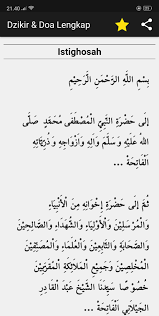 21.40
Dzikir & Doa Lengkap
Istighosah
بِسْمِ اللَّهِ الرَّحْمَنِ الرَّحِيْمِ
إِلَى حَضْرَةِ النَّبِيِّ الْمُصْطَفَى مُحَمَّدٍ صَلَّى
اللهُ عَلَيْهِ وَسَلَّمَ وَآلِهِ وَأَزْوَاجِهِ وَذُرِّيَّاتِهِ
الْفَاتِحَةُ ...
ثُمَّ إِلَى حَضْرَةِ إِخْوَانِهِ مِنَ الْأَنْبِيَاءِ
وَالْمُرْسَلِيْنَ وَالْأَوْلِيَاءِ وَالشُّهَدَاءِ وَالصَّالِحِيْنَ
وَالصَّحَابَةِ وَالتَّابِعِيْنَ وَالْعُلَمَاءِ وَالْمُصَنِّفِيْنَ
الْمُخْلِصِيْنَ وَجَمِيْعِ الْمَلَائِكَةِ الْمُقَرَّبِيْنَ
خُصُوْصًا سَيِّدِنَا الشَّيْخِ عَبْدِ الْقَادِرِ
الْجَيْلَانِي الْفَاتِحَةُ ...